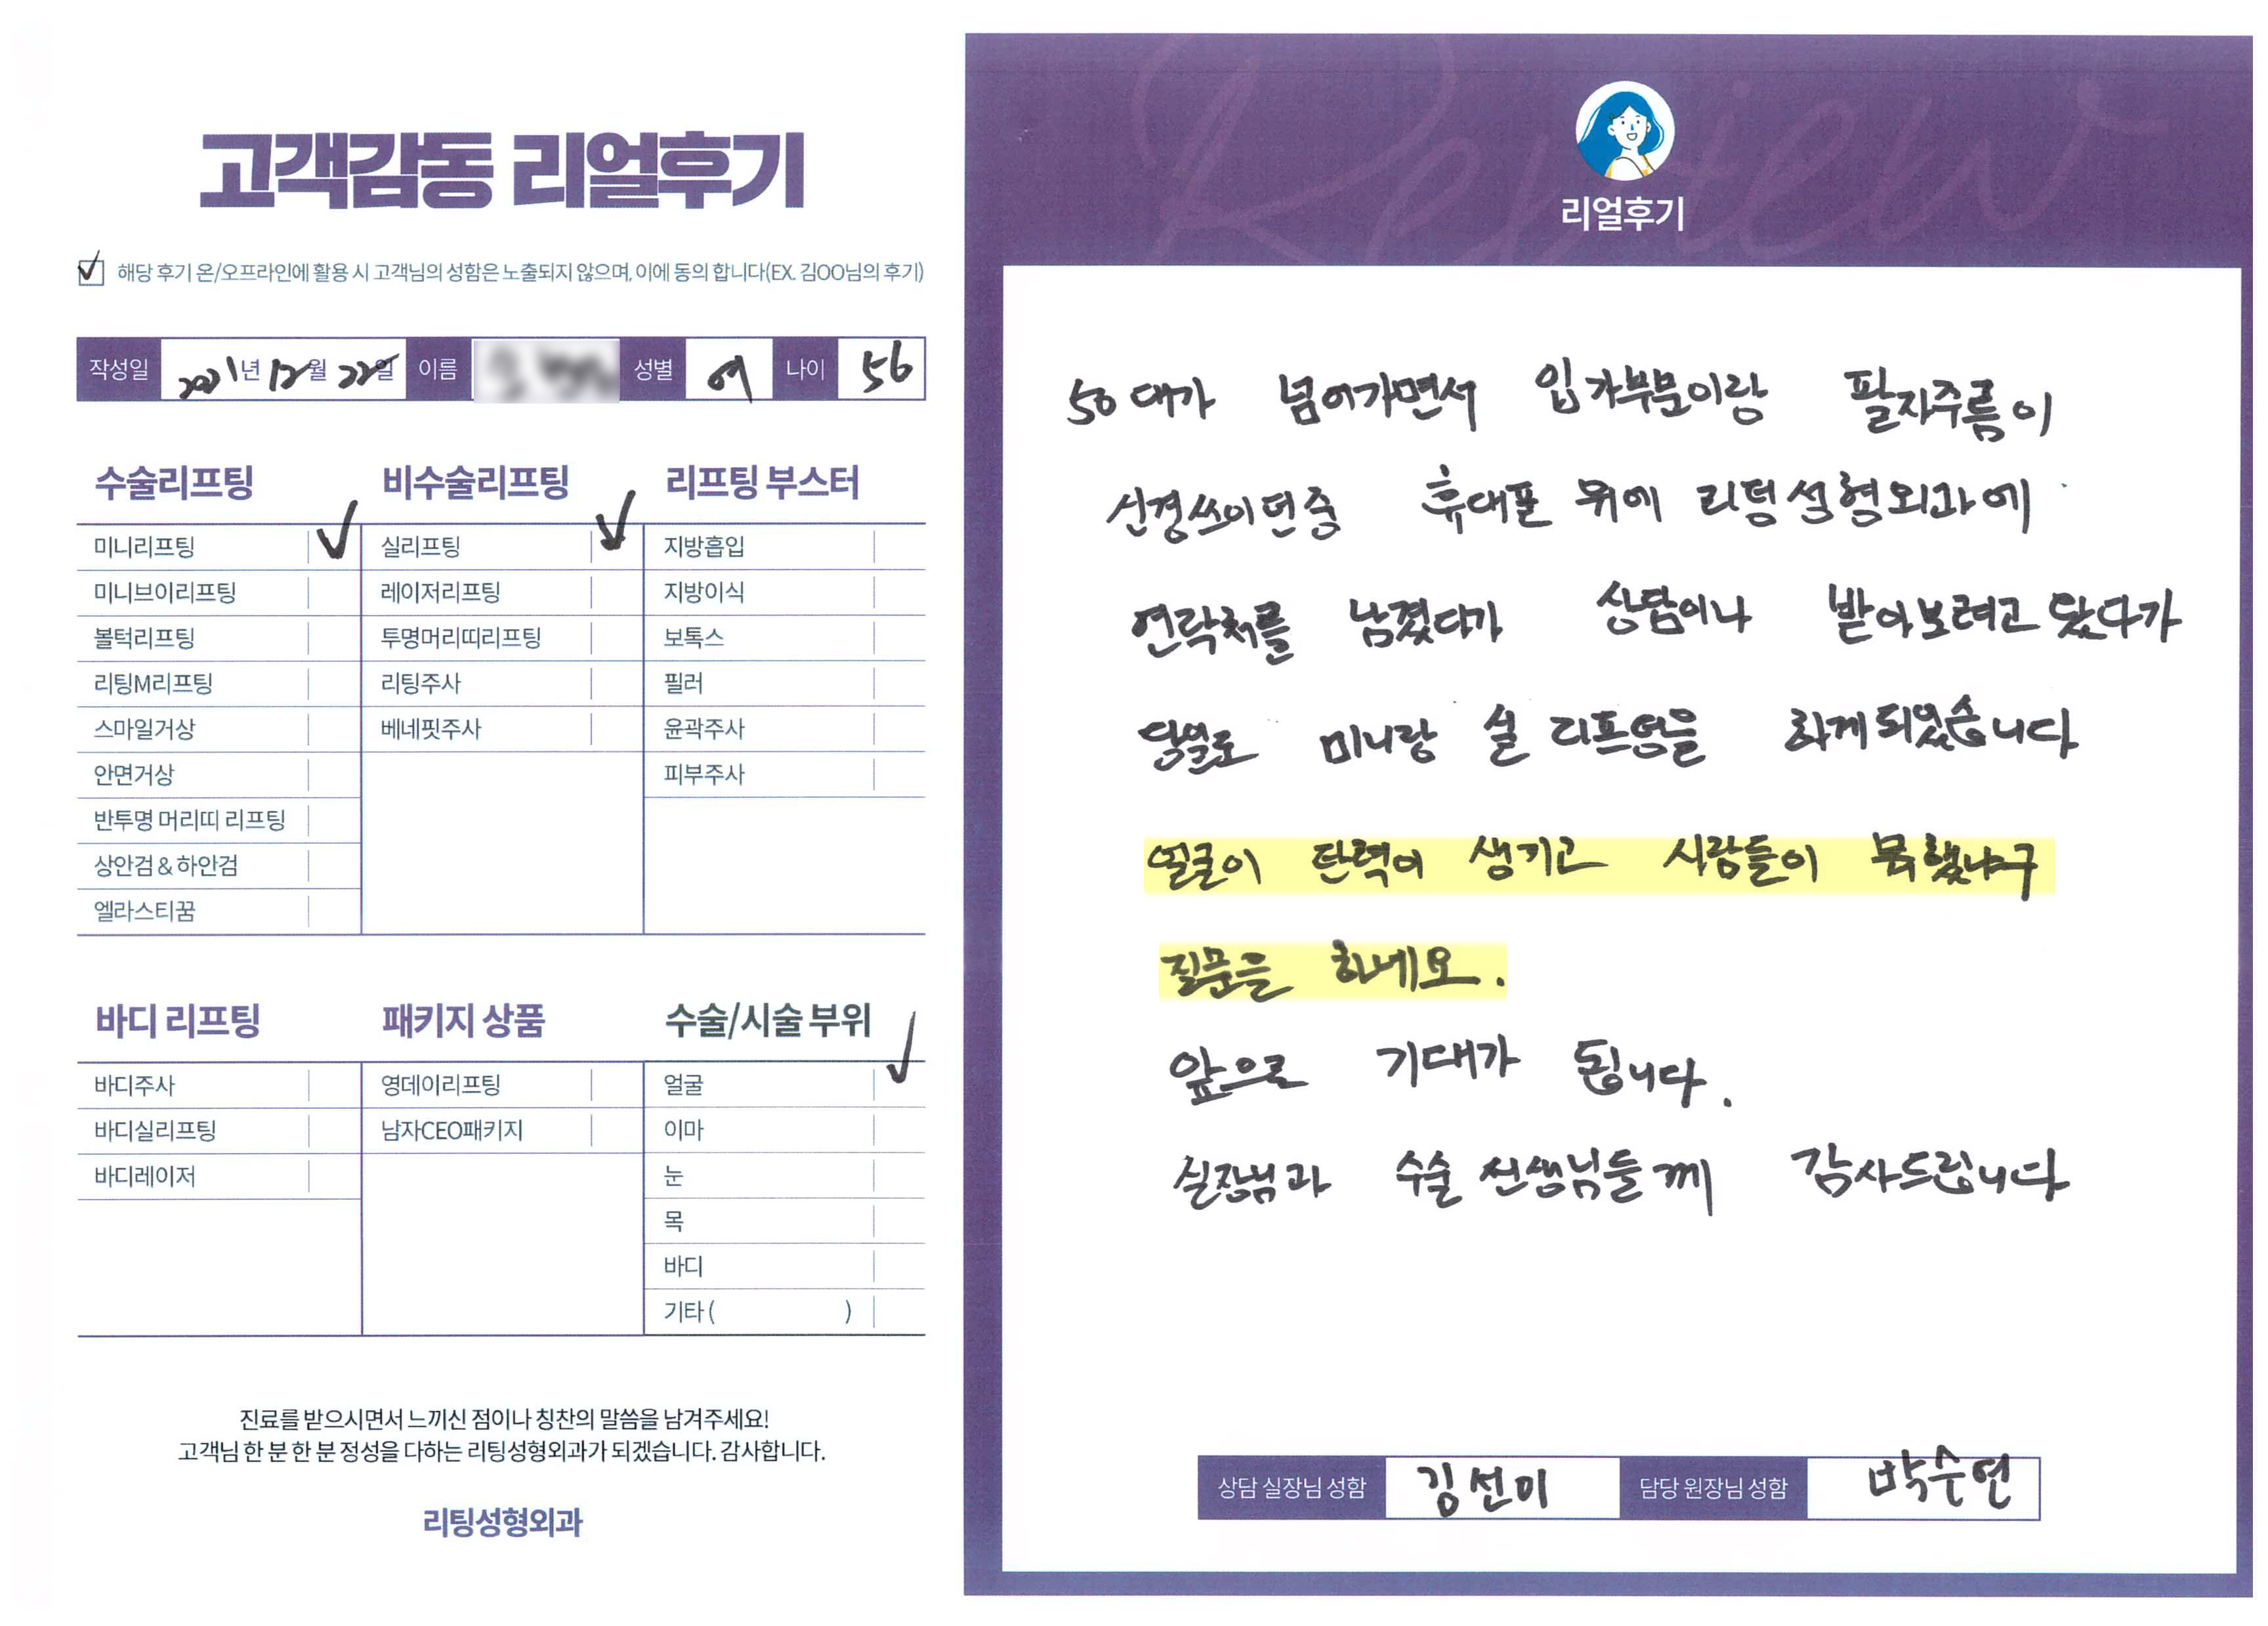 고객감동 리얼후기
해당 후기 온/오프라인에 활용 시 고객님의 성함은 노출되지 않으며, 이에 동의 합니다(EX. 김OO님의 후기)
작성일 2021년 12월 22일 이름 성별 여 나이 56
수술리프팅
미니리프팅
미니브이리프팅
볼턱리프팅
리팅M리프팅
스마일거상
안면거상
반투명 머리띠 리프팅
상안검 & 하안검
엘라스티꿈
비수술리프팅
실리프팅
레이저리프팅
투명머리띠리프팅
리팅주사
베네핏주사
리프팅 부스터
지방흡입
지방이식
보톡스
필러
윤곽주사
피부주사
바디 리프팅
바디주사
바디실리프팅
바디레이저
패키지 상품
영데이리프팅
남자CEO패키지
수술/시술 부위
얼굴
이마
눈
목
바디
기타 ( )
진료를 받으시면서 느끼신 점이나 칭찬의 말씀을 남겨주세요!
고객님 한 분 한 분 정성을 다하는 리팅성형외과가 되겠습니다. 감사합니다.
리팅성형외과
Review
리얼후기
50대가 넘어가면서 입가부분이랑 팔자주름이
신경쓰이던중 휴대폰 위에 리팅성형외과에
연락처를 남겼다가 상담이나 받아보려고 왔다가
당일로 미니랑 실 리프팅을 하게되었습니다
얼굴이 탄력이 생기고 사람들이 뭐했냐구
질문을 하네요.
앞으로 기대가 됩니다.
실장님과 수술 선생님들께 감사드립니다
상담 실장님 성함 김선미 담당 원장님 성함 박수연